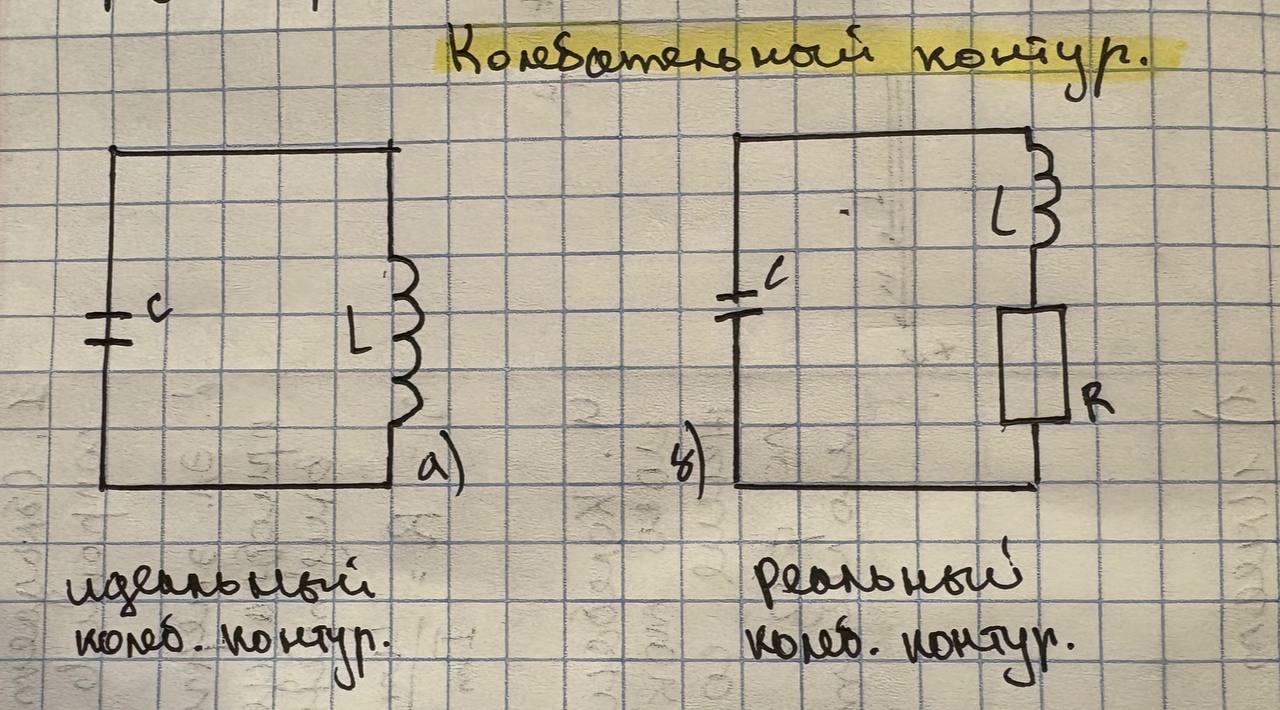 Колебательный контур.
C
L
а)
C
L
R
б)
идеальный
колеб. контур.
реальный
колеб. контур.